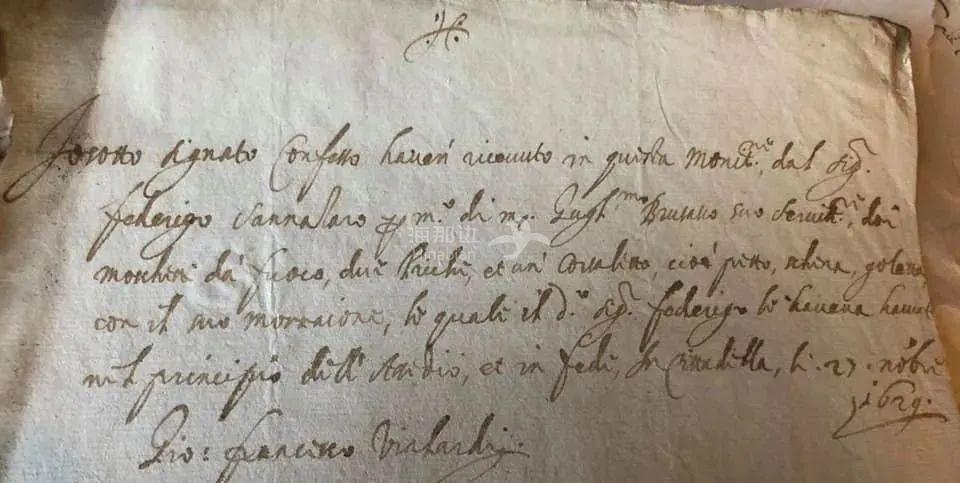 .H.
Io sotto signato Confesso haver ricevuto in questa monit.ne dal Sig.
federigo Sannazaro p m.o di m. Gugl.mo Brusasco suo servit.re, doi
moscheti da fuoco, due Picche, et un Corsaletto, cioè petto, schina, goletta,
con il suo morraione, le quali il d.o Sig. federigo le haveva
nel principio dell' Asedio, et in fede, In Cittadella, li 27 nōbre
1629.
Gio: francesco Vialardi
海那边